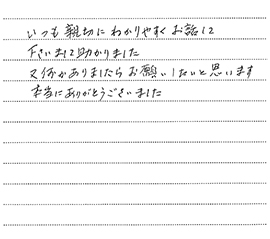 いつも親切にわかりやすくお話して
下さいまして助かりました
又何かありましたらお願いしたいと思います
本当にありがとうございました